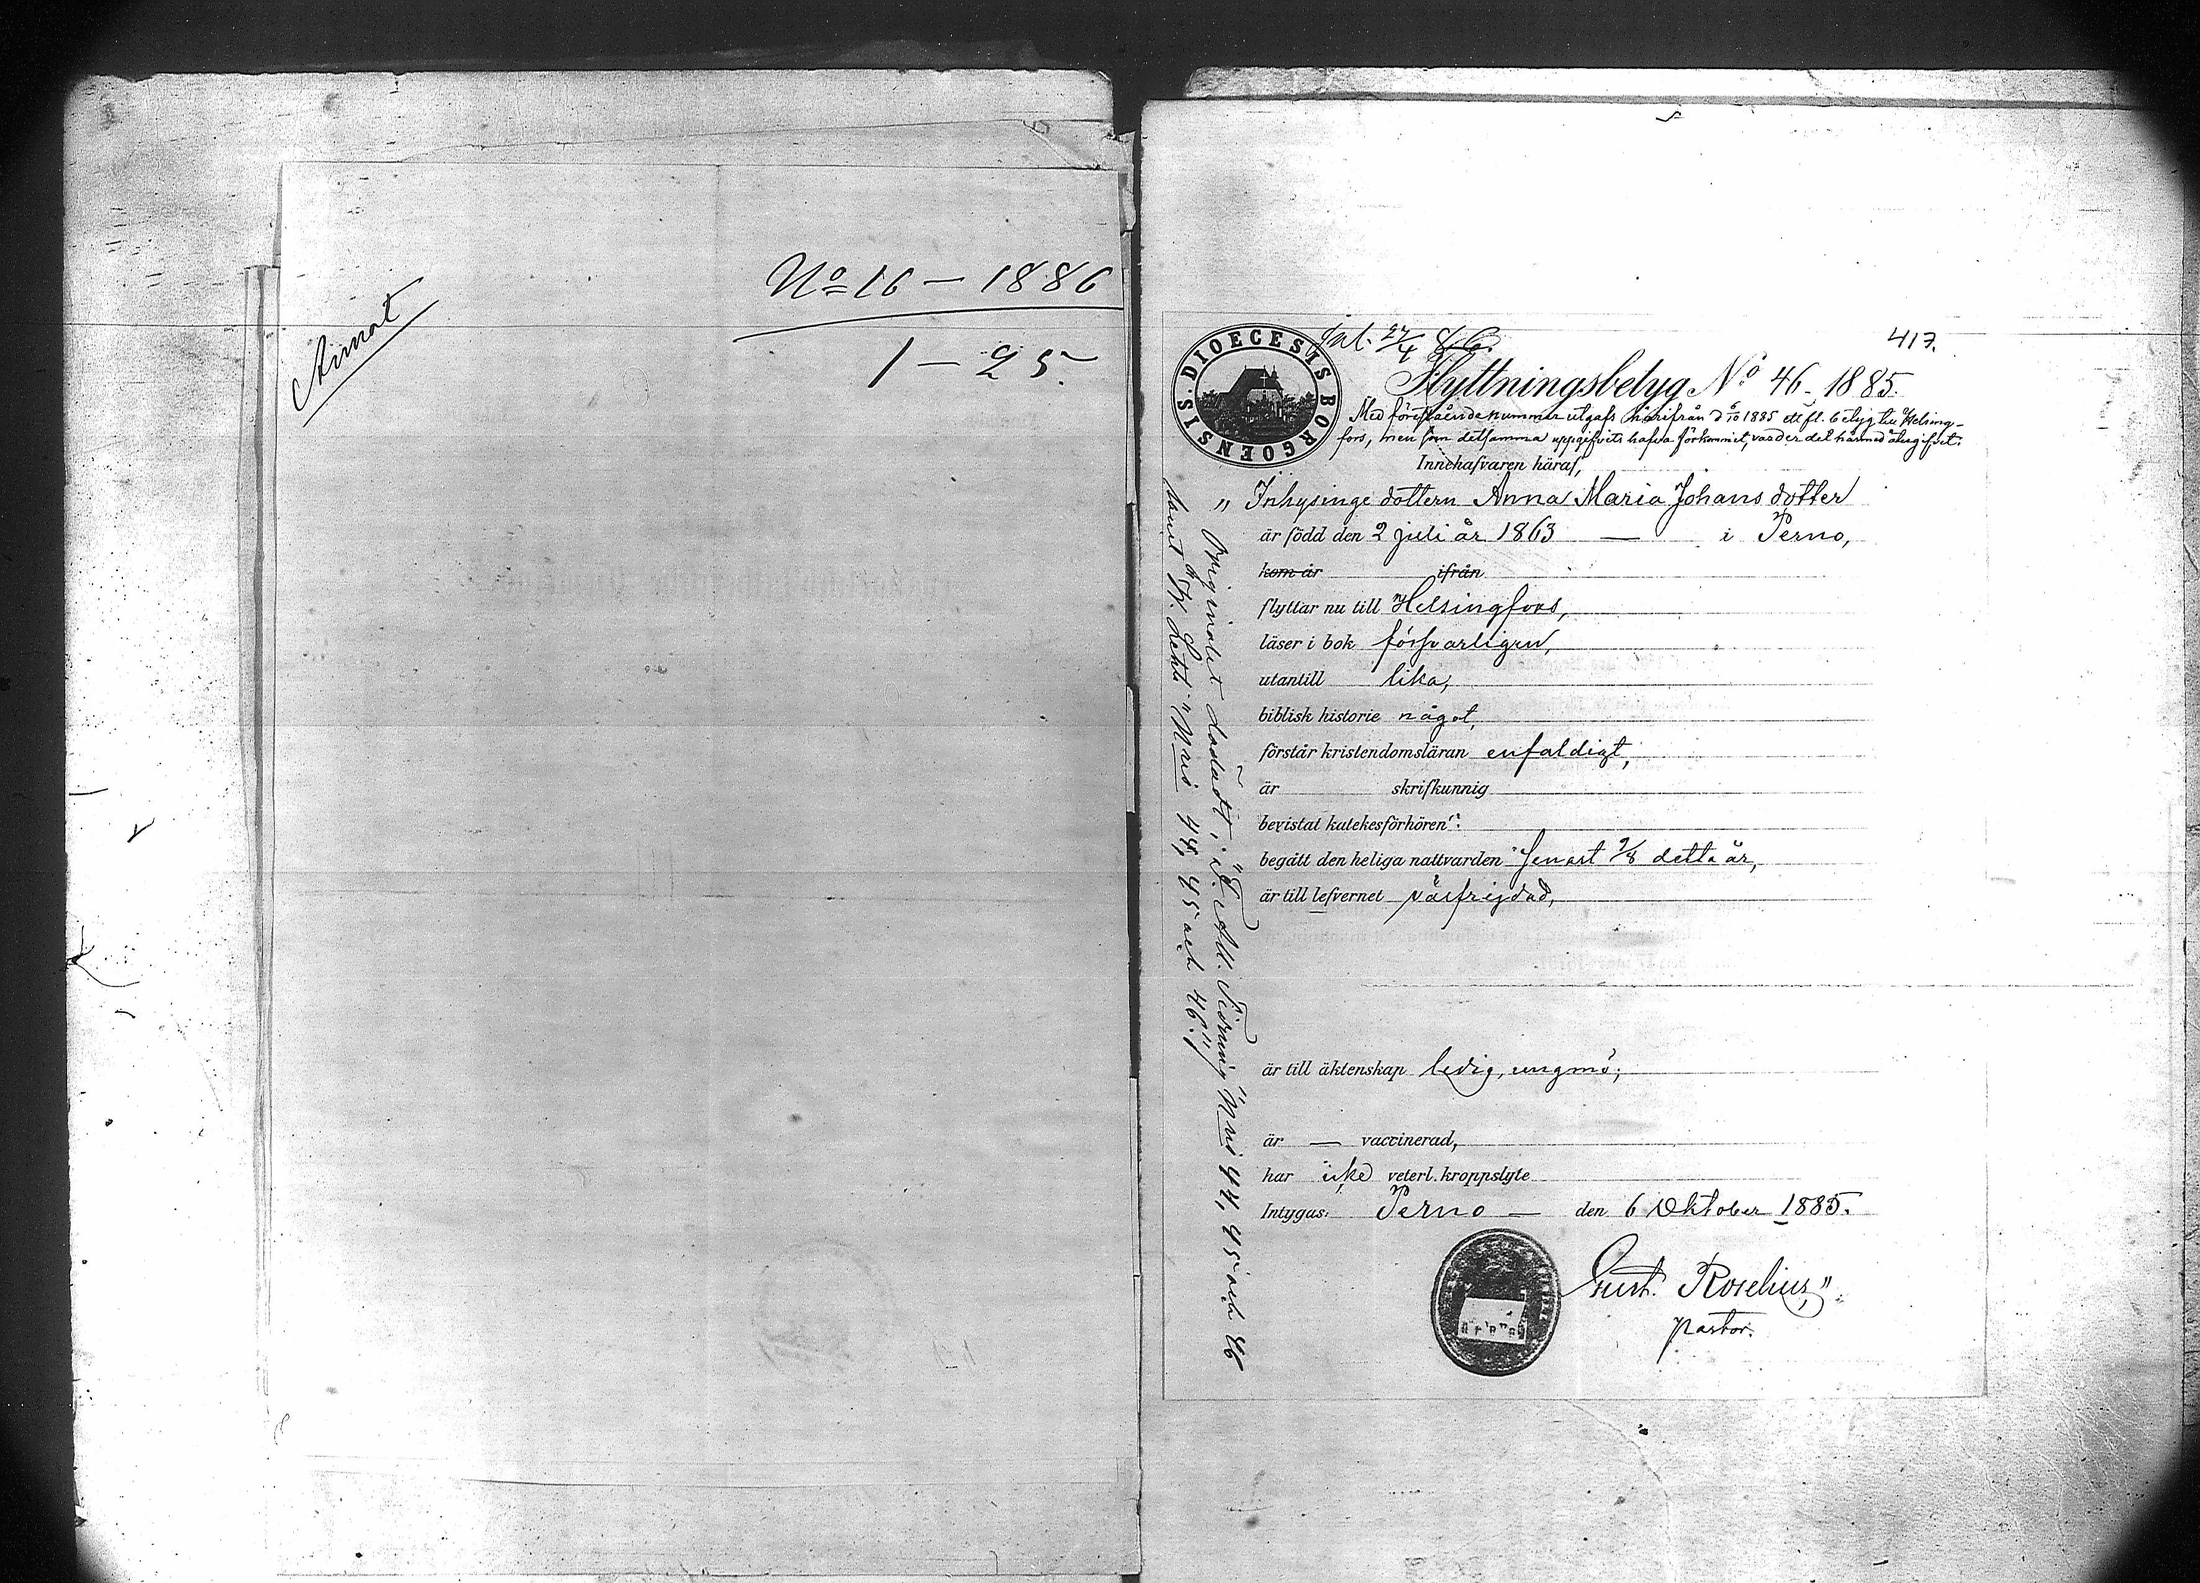 Annat
No 16 – 1886
1 – 25.
417.
Inl. 27/4 86.
DIOECESIS BORGOENSIS
Flyttningsbetyg No 46 - 1885.
Med förestående nummer utgafs härifrån d 6/10 1885 ett fl. betyg till Helsing-
fors, men som detsamma uppgifvits hafva förkommit, varder det härmed återgifvet.
Innehafvaren häraf,
" Inhysinge dottern Anna Maria Johans dotter
är född den 2 juli år 1863 — i Perno,
kom år ifrån
flyttar nu till Helsingfors,
läser i bok försvarligen,
utantill lika,
biblisk historie något,
förstår kristendomsläran enfaldigt,
är skrifkunnig
bevistat katekesförhören:
begått den heliga nattvarden senast 9/8 detta år,
är till lefvernet väl frejdad,
är till äktenskap ledig, ungmö;
är — vaccinerad,
har icke veterl. kroppslyte
Intygas: Perno — den 6 Oktober 1885.
Gust. Roselius,"
Pastor.
Originalet dödadt i "F. Allm. Tidning" N:ris 44, 45 och 46
samt "Lehti" N:ris 44, 45 och 46."/